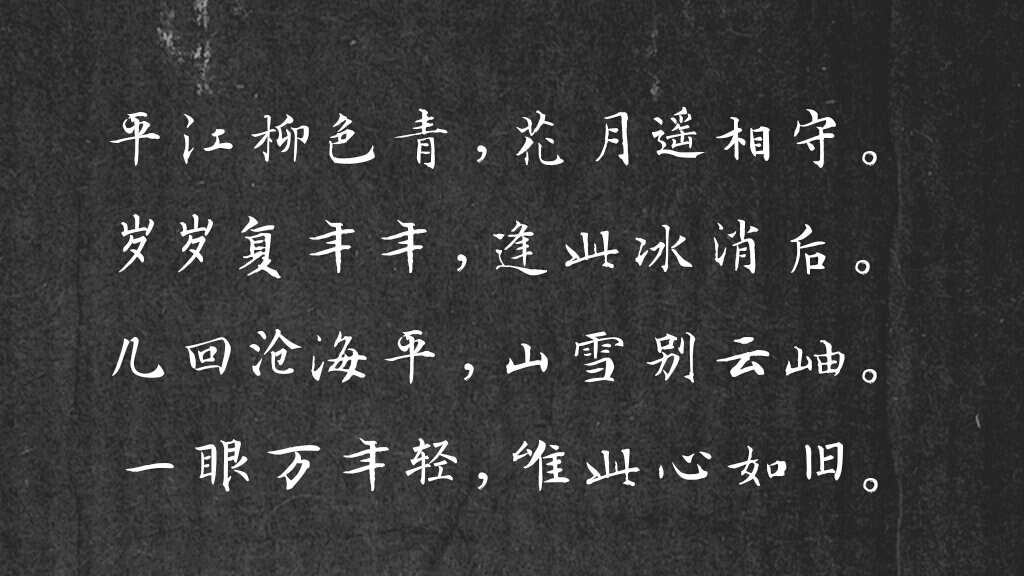 平江柳色青，花月遥相守。
岁岁复年年，逢此冰消后。
几回沧海平，山雪别云岫。
一眼万年轻，唯此心如旧。